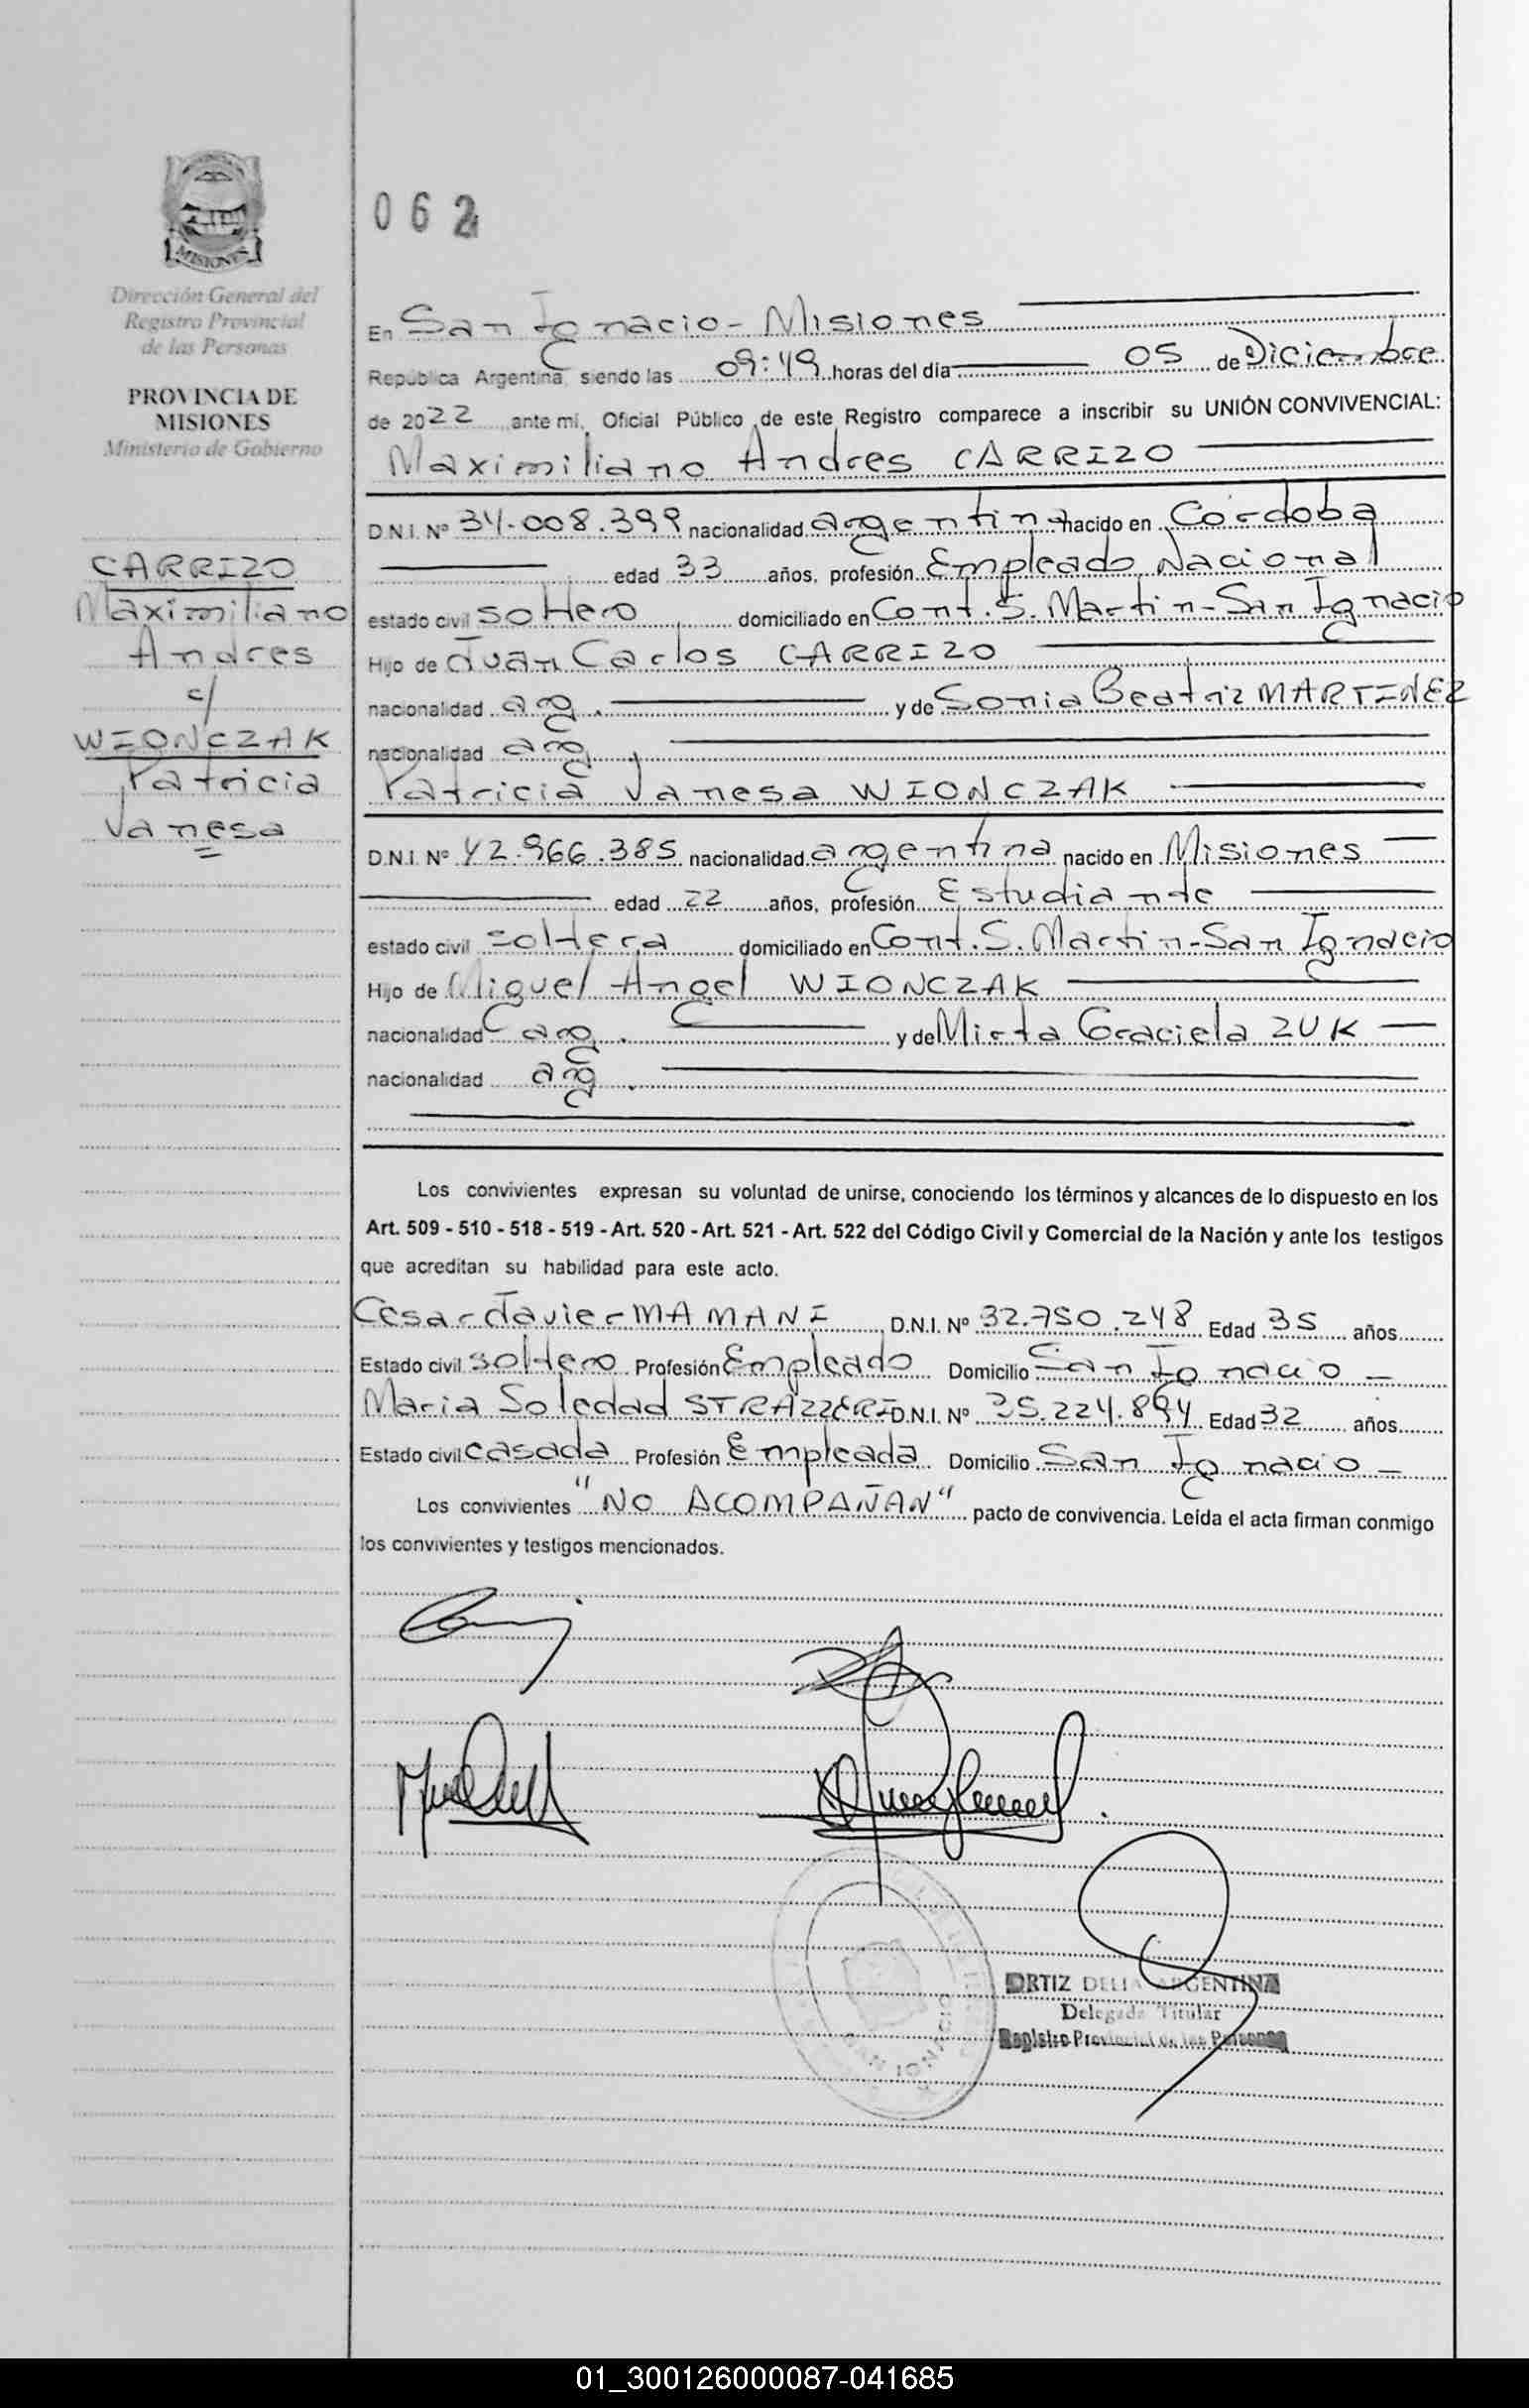 MISIONES
Dirección General del
Registro Provincial
de las Personas
PROVINCIA DE
MISIONES
Ministerio de Gobierno
CARRIZO
Maximiliano
Andres
c/
WIONCZAK
Patricia
Vanesa
062
En San Ignacio - Misiones
República Argentina, siendo las 09:49 horas del día 05 de Diciembre
de 2022 ante mi, Oficial Público de este Registro comparece a inscribir su UNIÓN CONVIVENCIAL:
Maximiliano Andres CARRIZO
D.N.I. Nº 34.008.399 nacionalidad argentina nacido en Córdoba
edad 33 años, profesión Empleado Nacional
estado civil soltero domiciliado en Cont. S. Martin - San Ignacio
Hijo de Juan Carlos CARRIZO
nacionalidad arg. y de Sonia Beatriz MARTINEZ
nacionalidad arg.
Patricia Vanesa WIONCZAK
D.N.I. Nº 42.966.385 nacionalidad argentina nacido en Misiones
edad 22 años, profesión Estudiante
estado civil soltera domiciliado en Cont. S. Martin - San Ignacio
Hijo de Miguel Angel WIONCZAK
nacionalidad arg. y de Mirta Graciela ZUK
nacionalidad arg.
Los convivientes expresan su voluntad de unirse, conociendo los términos y alcances de lo dispuesto en los
Art. 509 - 510 - 518 - 519 - Art. 520 - Art. 521 - Art. 522 del Código Civil y Comercial de la Nación y ante los testigos
que acreditan su habilidad para este acto.
Cesar Javier MAMANI D.N.I. Nº 32.750.248 Edad 35 años
Estado civil soltero Profesión Empleado Domicilio San Ignacio -
Maria Soledad STRAZZERI D.N.I. Nº 35.224.894 Edad 32 años
Estado civil casada Profesión Empleada Domicilio San Ignacio -
Los convivientes "NO ACOMPAÑAN" pacto de convivencia. Leída el acta firman conmigo
los convivientes y testigos mencionados.
ORTIZ DELIA ARGENTINA
Delegada Titular
Registro Provincial de las Personas
SAN IGNACIO
01_300126000087-041685